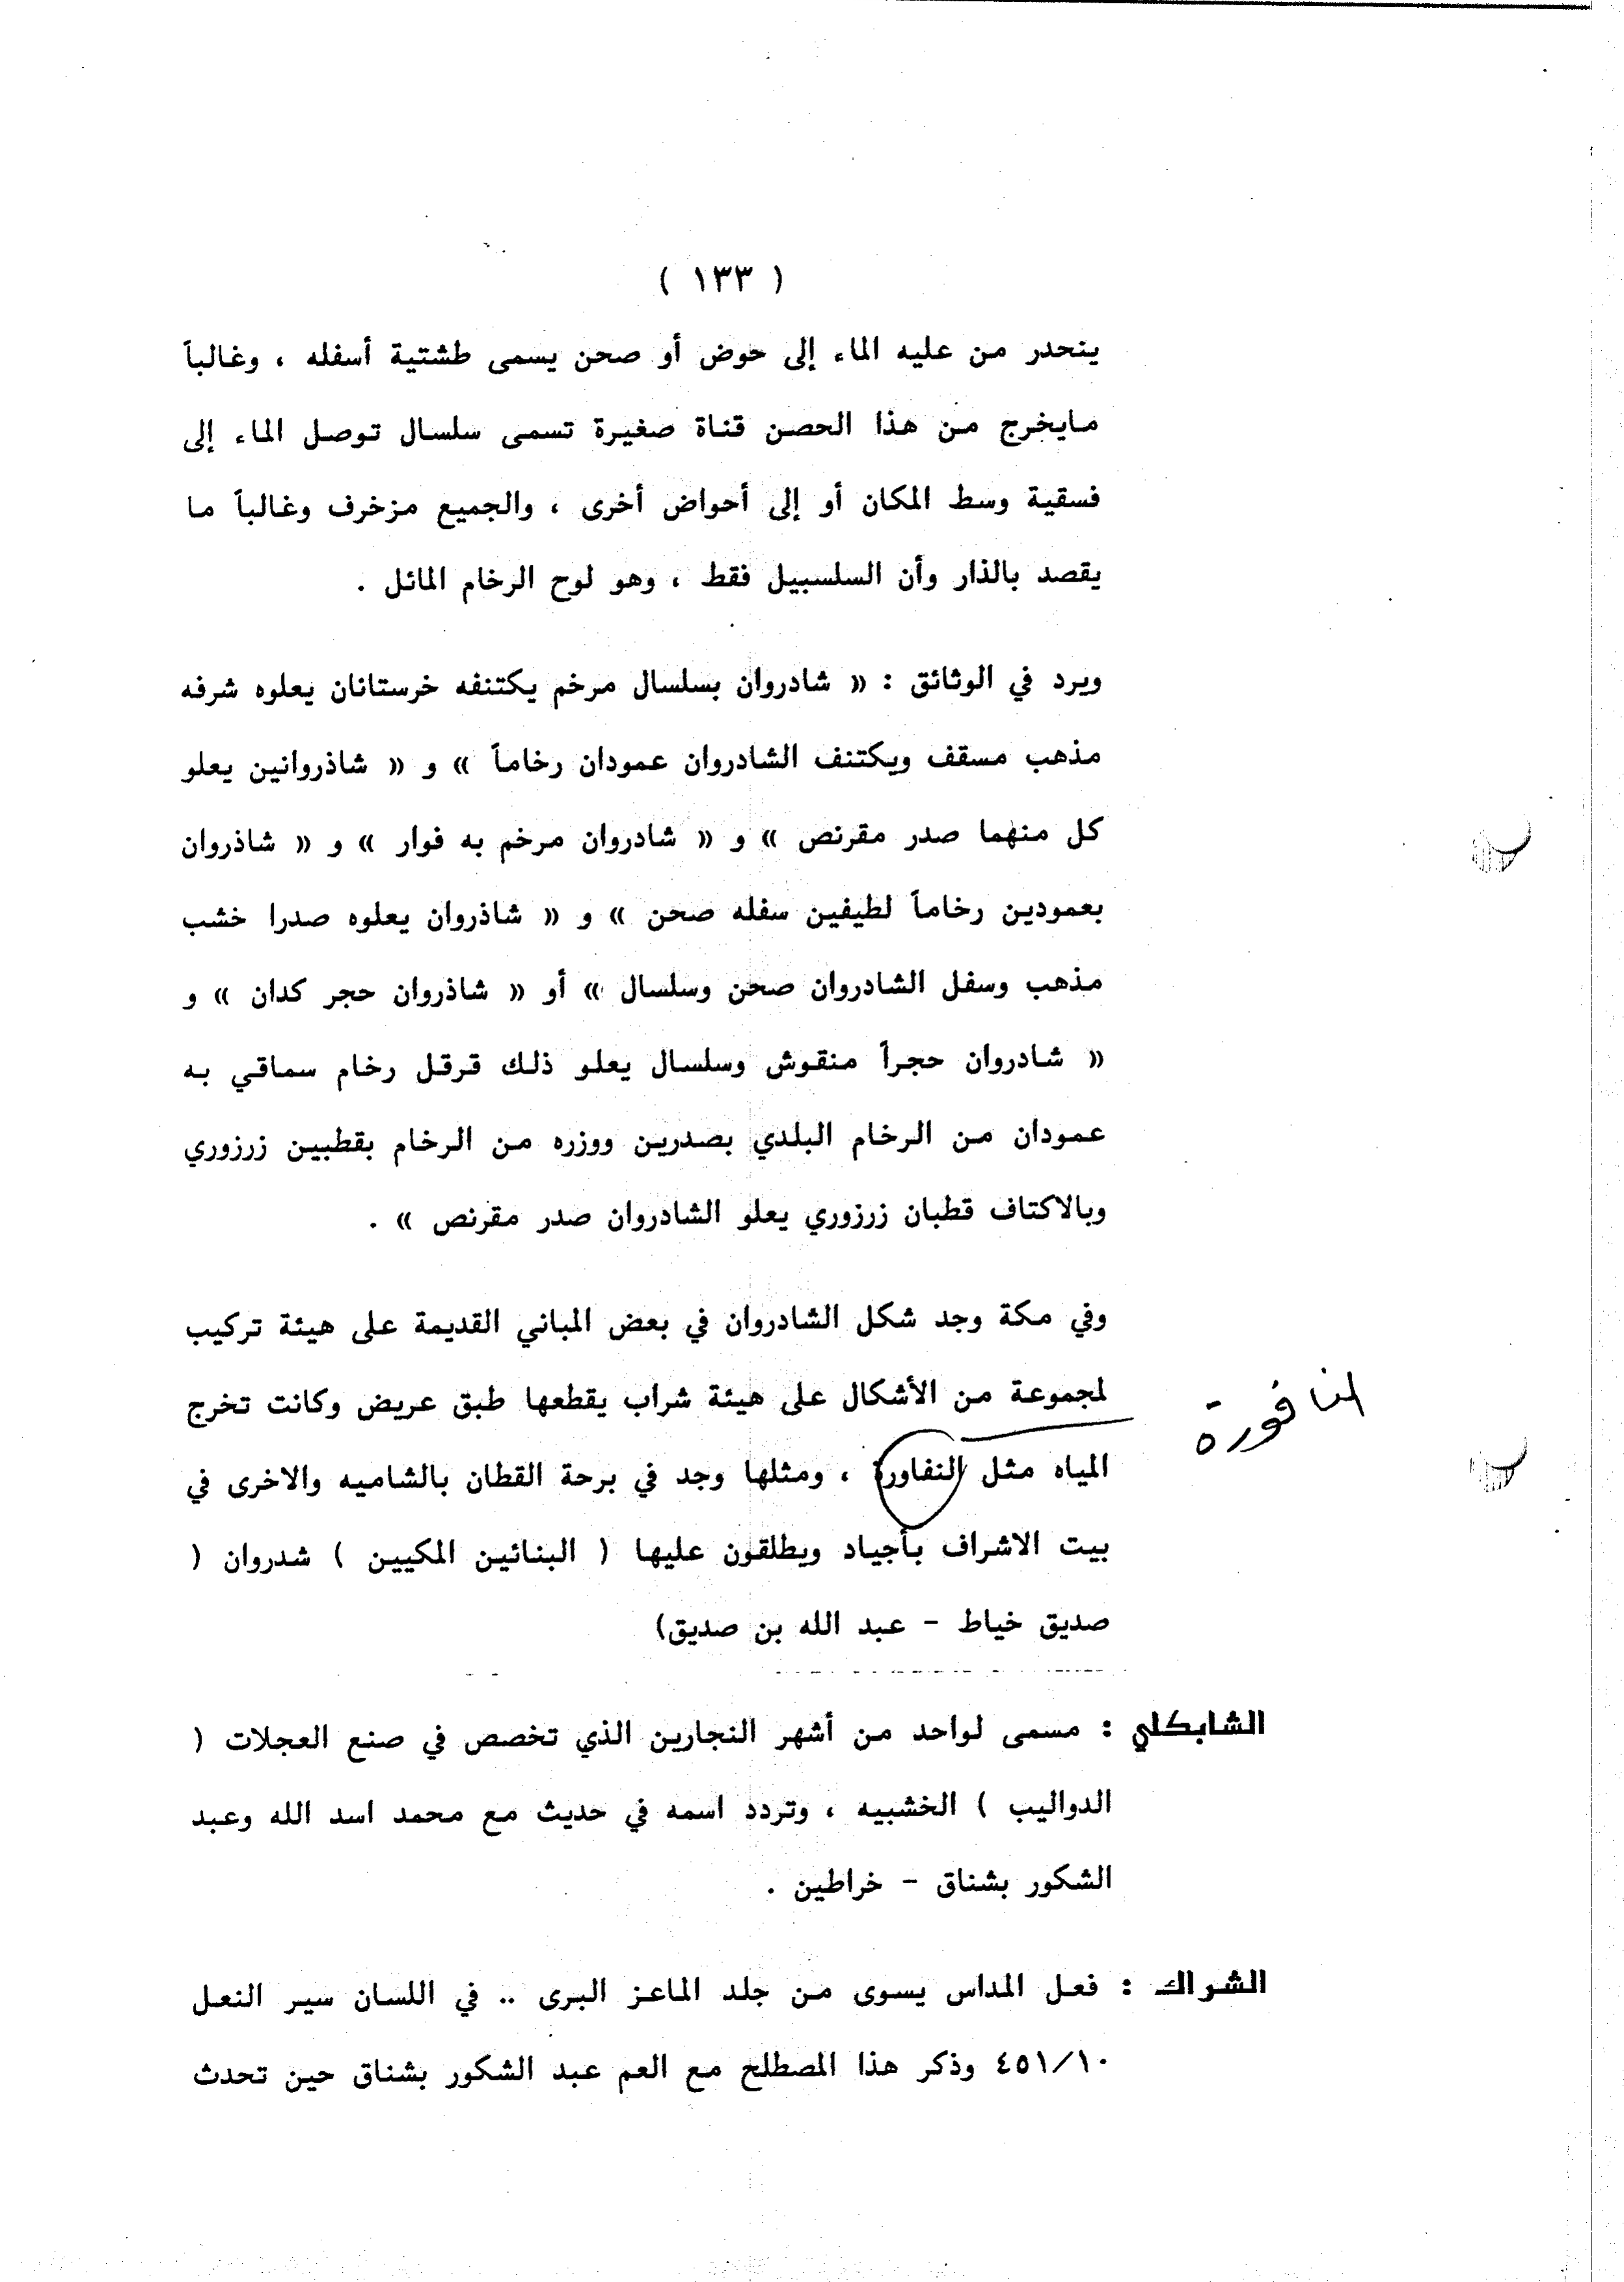 ( ١٣٣ )
ينحدر من عليه الماء إلى حوض أو صحن يسمى طشتية أسفله ، وغالباً
مايخرج من هذا الحصن قناة صغيرة تسمى سلسال توصل الماء إلى
فسقية وسط المكان أو إلى أحواض أخرى ، والجميع مزخرف وغالباً ما
يقصد بالذار وأن السلسبيل فقط ، وهو لوح الرخام المائل .
ويرد في الوثائق : « شادروان بسلسال مرخم يكتنفه خرستانان يعلوه شرفه
مذهب مسقف ويكتنف الشادروان عمودان رخاماً » و « شاذروانين يعلو
كل منهما صدر مقرنص » و « شادروان مرخم به فوار » و « شاذروان
بعمودين رخاماً لطيفين سفله صحن » و « شاذروان يعلوه صدرا خشب
مذهب وسفل الشادروان صحن وسلسال » أو « شاذروان حجر كدان » و
« شادروان حجراً منقوش وسلسال يعلو ذلك قرقل رخام سماقي به
عمودان من الرخام البلدي بصدرين ووزره من الرخام بقطبين زرزوري
وبالاكتاف قطبان زرزوري يعلو الشادروان صدر مقرنص » .
وفي مكة وجد شكل الشادروان في بعض المباني القديمة على هيئة تركيب
لمجموعة من الأشكال على هيئة شراب يقطعها طبق عريض وكانت تخرج
النافورة
المياه مثل النفاورة ، ومثلها وجد في برحة القطان بالشاميه والاخرى في
بيت الاشراف بأجياد ويطلقون عليها ( البنائين المكيين ) شدروان (
صديق خياط - عبد الله بن صديق)
الشابكلي : مسمى لواحد من أشهر النجارين الذي تخصص في صنع العجلات (
الدواليب ) الخشبيه ، وتردد اسمه في حديث مع محمد اسد الله وعبد
الشكور بشناق - خراطين .
الشراك : فعل المداس يسوى من جلد الماعز البرى .. في اللسان سير النعل
٤٥١/١٠ وذكر هذا المصطلح مع العم عبد الشكور بشناق حين تحدث